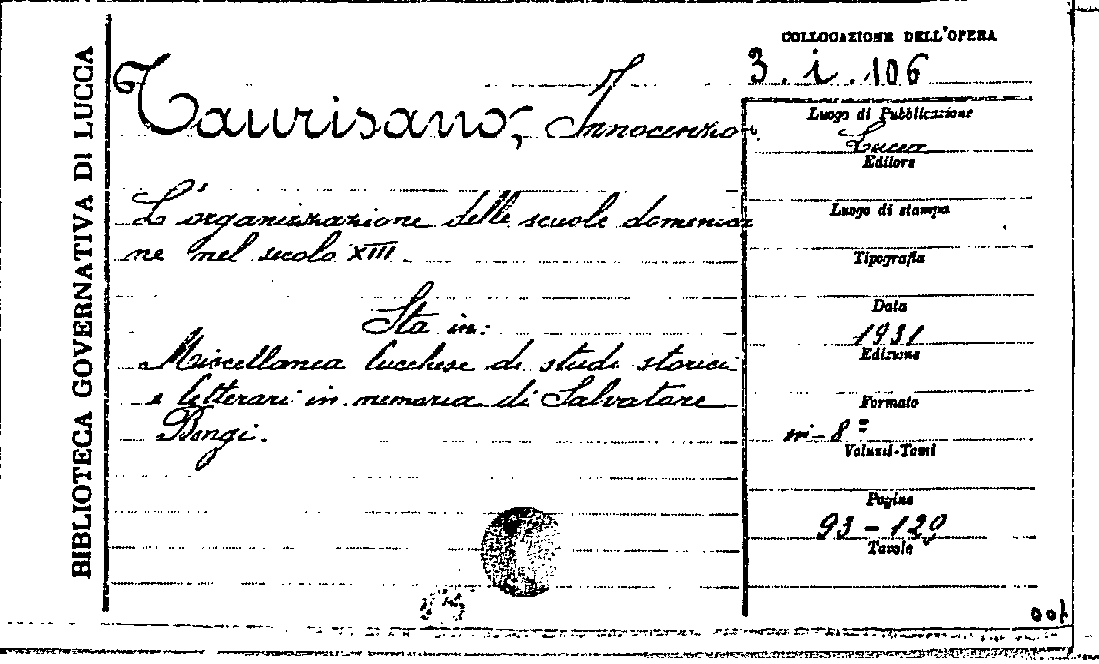 BIBLIOTECA GOVERNATIVA DI LUCCA
COLLOCAZIONE DELL'OPERA
3. i. 106
Taurisano, Innocenzo.
L'organizzazione delle scuole domenica
ne nel secolo XIII.
Sta in:
Miscellanea lucchese di studi storici
e letterari in memoria di Salvatore
Bongi.
Luogo di Pubblicazione
Lucca
Editore
Luogo di stampa
Tipografia
Data
1931
Edizione
Formato
in-8º
Volumi-Tomi
Pagine
93-129
Tavole